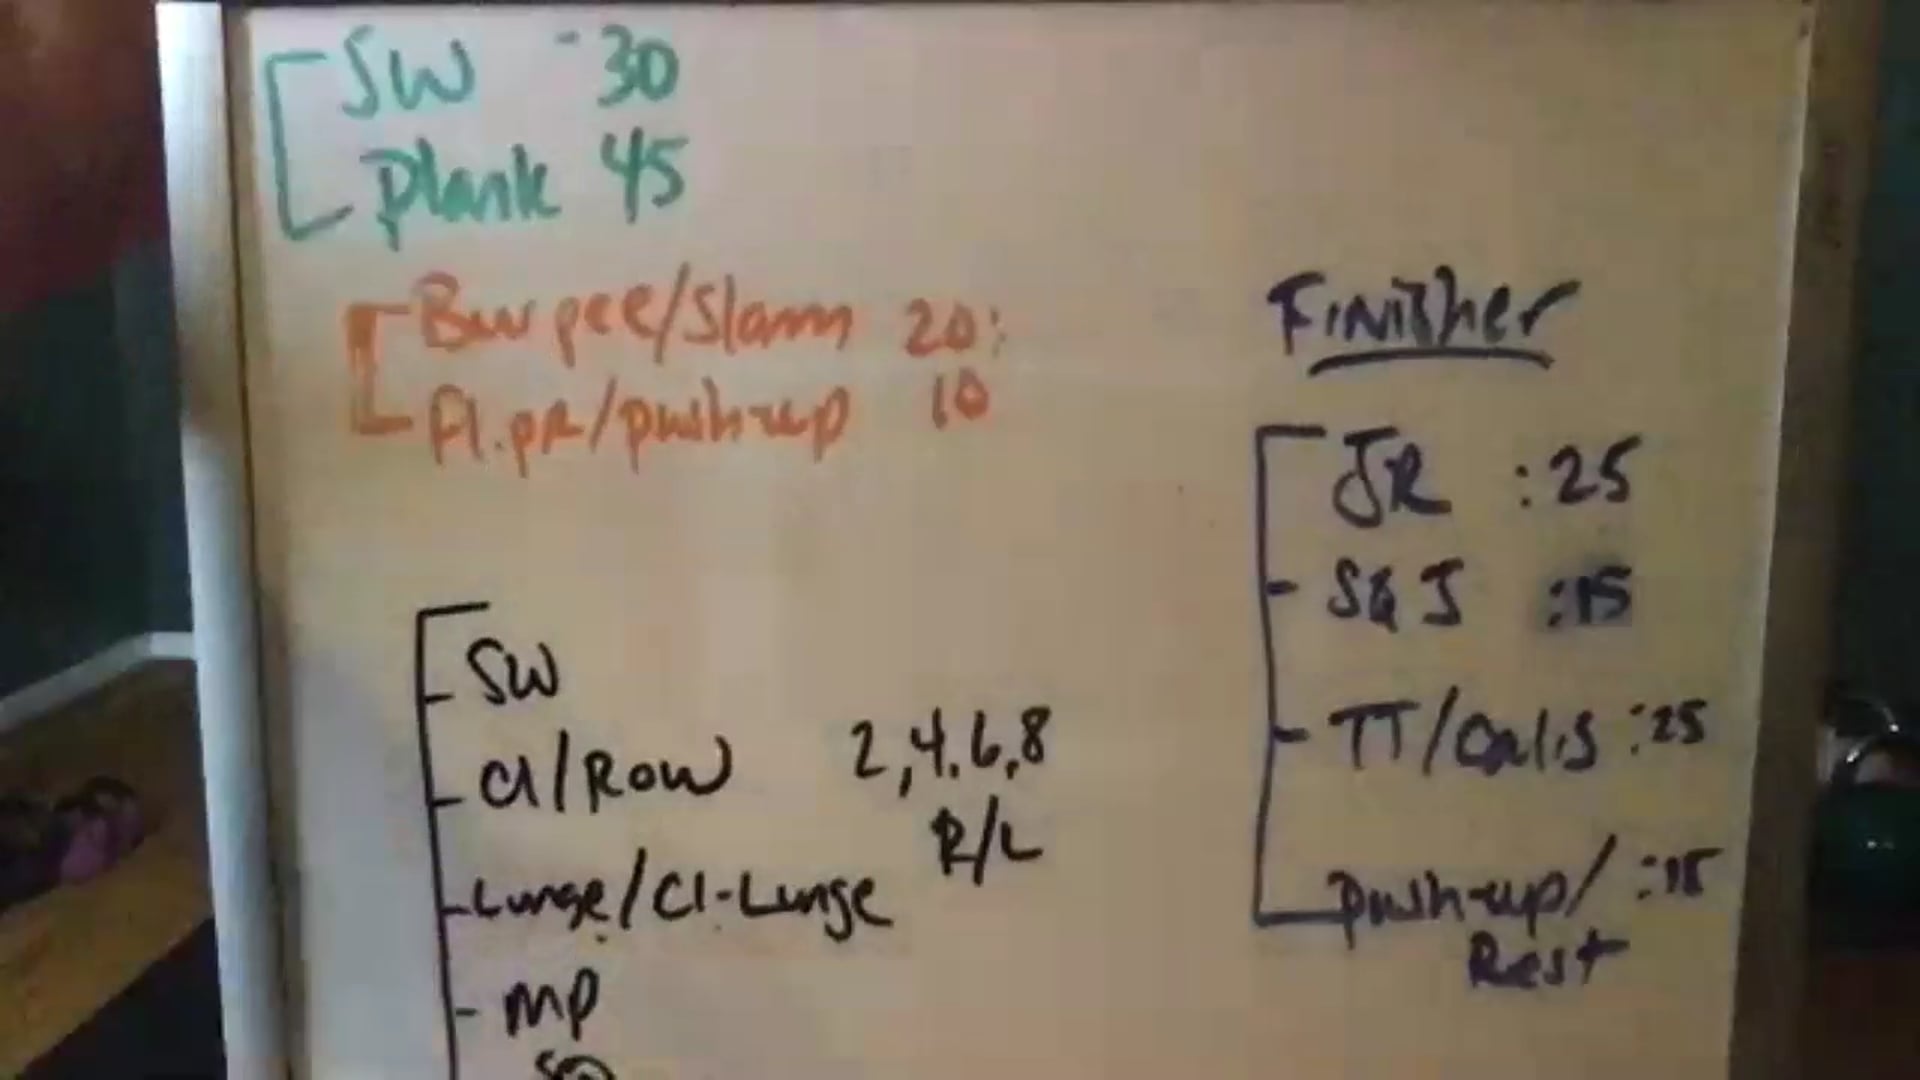 SW - 30
Plank 45
Burpee/Slam 20:
Fl.pr/push-up 10
SW
Cl/Row 2,4,6,8
R/L
Lunge/Cl-Lunge
MP
Finisher
JR :25
S&J :15
TT/Calis :25
push-up/ :15
Rest